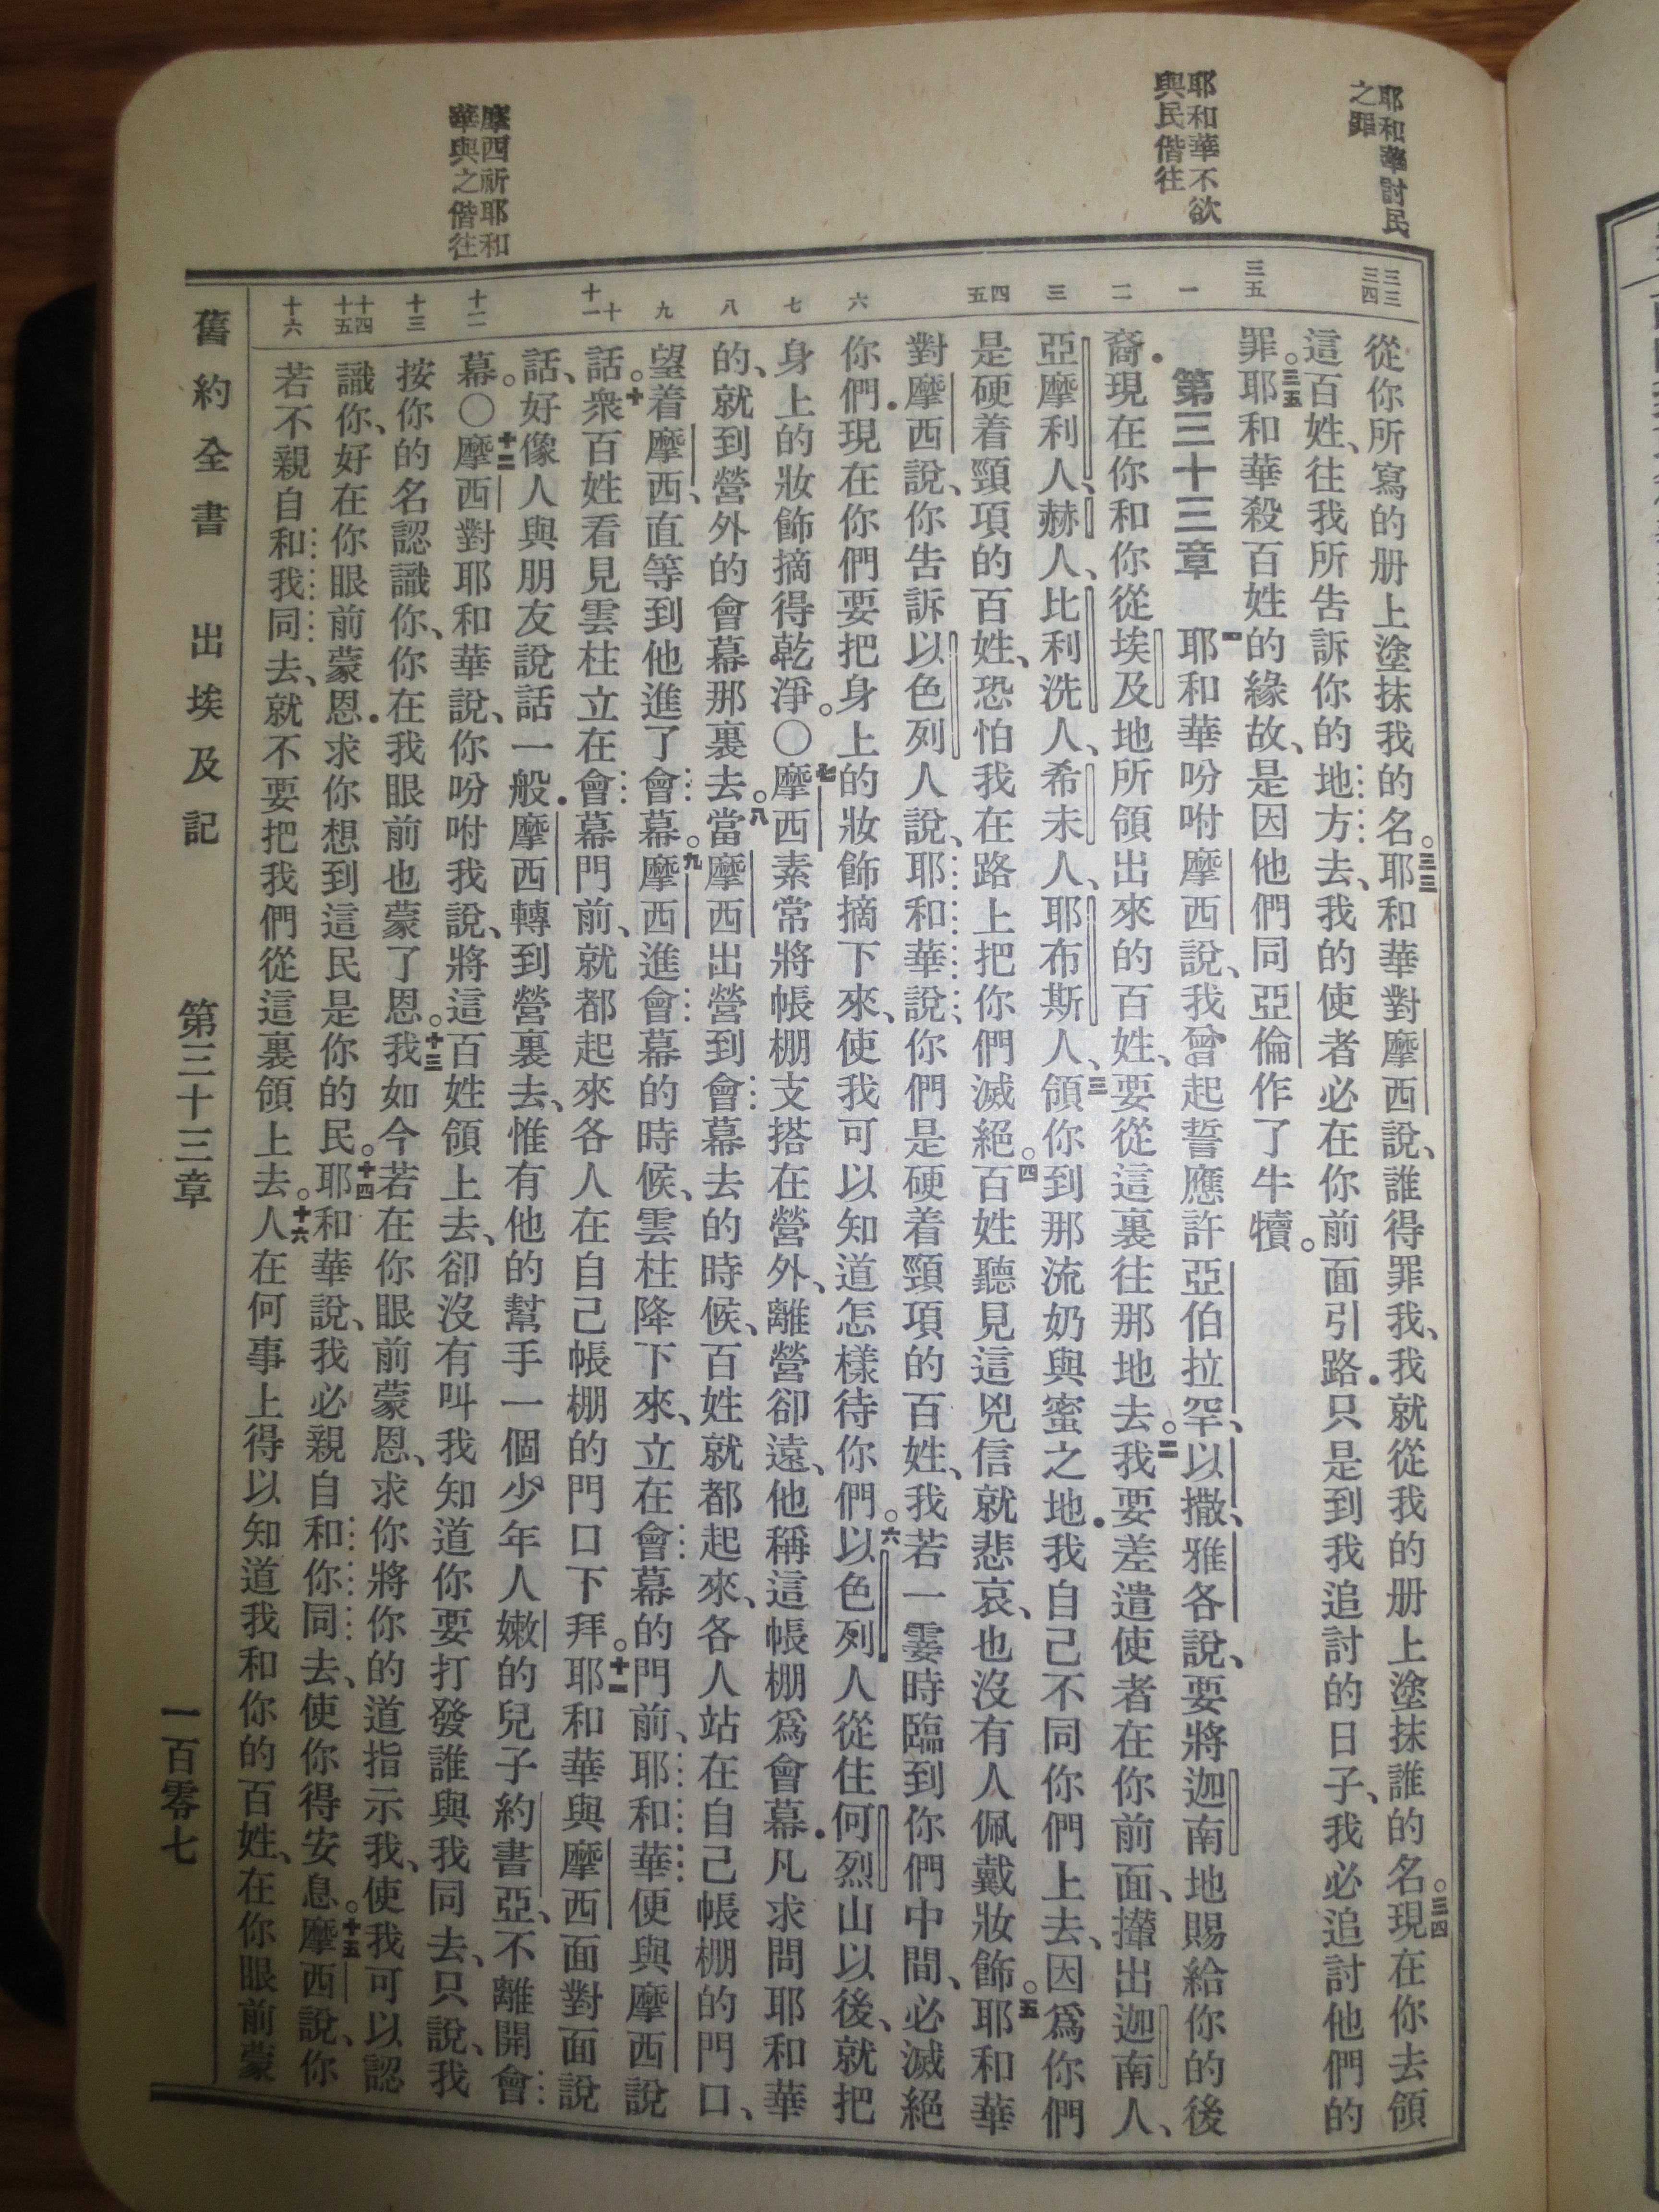 耶和華討民
之罪
耶和華不欲
與民偕往
摩西祈耶和
華與之偕往
三三
三四
三五
一
二
三
四
五
六
七
八
九
十
十一
十二
十三
十四
十五
十六
從你所寫的册上塗抹我的名。三三耶和華對摩西說、誰得罪我、我就從我的册上塗抹誰的名。三四現在你去領
這百姓、往我所告訴你的地方去、我的使者必在你前面引路．只是到我追討的日子、我必追討他們的
罪。三五耶和華殺百姓的緣故、是因他們同亞倫作了牛犢。
第三十三章　一耶和華吩咐摩西說、我曾起誓應許亞伯拉罕、以撒、雅各說、要將迦南地賜給你的後
裔．現在你和你從埃及地所領出來的百姓、要從這裏往那地去。二我要差遣使者在你前面、攆出迦南人、
亞摩利人、赫人、比利洗人、希未人、耶布斯人、三領你到那流奶與蜜之地．我自己不同你們上去、因爲你們
是硬着頸項的百姓、恐怕我在路上把你們滅絕。四百姓聽見這兇信就悲哀、也沒有人佩戴妝飾。五耶和華
對摩西說、你告訴以色列人說、耶和華說、你們是硬着頸項的百姓、我若一霎時臨到你們中間、必滅絕
你們．現在你們要把身上的妝飾摘下來、使我可以知道怎樣待你們。六以色列人從住何烈山以後、就把
身上的妝飾摘得乾淨。〇七摩西素常將帳棚支搭在營外、離營卻遠、他稱這帳棚爲會幕．凡求問耶和華
的、就到營外的會幕那裏去。八當摩西出營到會幕去的時候、百姓就都起來、各人站在自己帳棚的門口、
望着摩西、直等到他進了會幕。九摩西進會幕的時候、雲柱降下來、立在會幕的門前、耶和華便與摩西說
話。十衆百姓看見雲柱立在會幕門前、就都起來各人在自己帳棚的門口下拜。十一耶和華與摩西面對面說
話、好像人與朋友說話一般．摩西轉到營裏去、惟有他的幫手一個少年人嫩的兒子約書亞、不離開會
幕。〇十二摩西對耶和華說、你吩咐我說、將這百姓領上去、卻沒有叫我知道你要打發誰與我同去、只說、我
按你的名認識你、你在我眼前也蒙了恩。十三我如今若在你眼前蒙恩、求你將你的道指示我、使我可以認
識你、好在你眼前蒙恩．求你想到這民是你的民。十四耶和華說、我必親自和你同去、使你得安息。十五摩西說、你
若不親自和我同去、就不要把我們從這裏領上去。十六人在何事上得以知道我和你的百姓、在你眼前蒙
舊約全書　出埃及記　第三十三章　一百零七